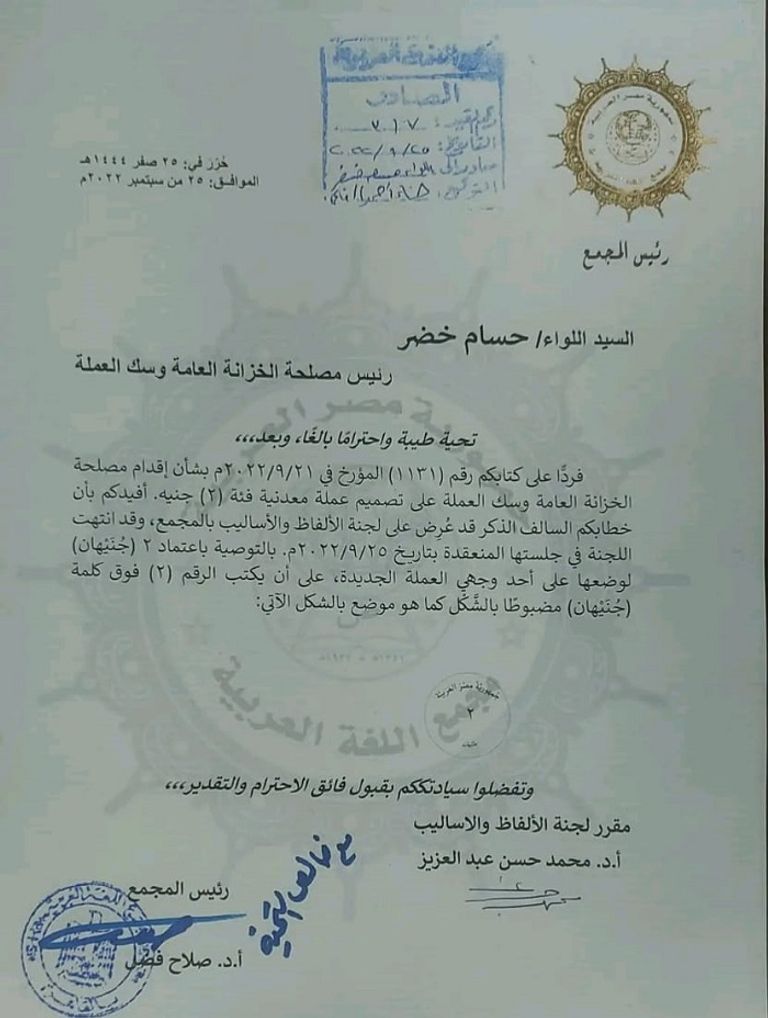 مجمع اللغة العربية
الصادر
رقم القيد: ٣١٧
التاريخ: ٢٠٢٢/٩/٢٥
صادر إلى اللواء حسام خضر
جمهورية مصر العربية
حُرّر في: ٢٥ صفر ١٤٤٤هـ
الموافق: ٢٥ من سبتمبر ٢٠٢٢م
رئيس المجمع
السيد اللواء/ حسام خضر
رئيس مصلحة الخزانة العامة وسك العملة
تحية طيبة واحترامًا بالغًا، وبعد،،،
فردًا على كتابكم رقم (١١٣١) المؤرخ في ٢٠٢٢/٩/٢١م بشأن إقدام مصلحة
الخزانة العامة وسك العملة على تصميم عملة معدنية فئة (٢) جنيه. أفيدكم بأن
خطابكم السالف الذكر قد عُرِض على لجنة الألفاظ والأساليب بالمجمع، وقد انتهت
اللجنة في جلستها المنعقدة بتاريخ ٢٠٢٢/٩/٢٥م. بالتوصية باعتماد ٢ (جُنَيْهان)
لوضعها على أحد وجهي العملة الجديدة، على أن يكتب الرقم (٢) فوق كلمة
(جُنَيْهان) مضبوطًا بالشَّكْل كما هو موضع بالشكل الآتي:
جمهورية مصر العربية
٢
جمهورية مصر العربية
١٣٥١هـ - ١٩٣٢م
مجمع اللغة العربية
وتفضلوا سيادتككم بقبول فائق الاحترام والتقدير،،،
مقرر لجنة الألفاظ والاساليب
أ.د. محمد حسن عبد العزيز
مع خالص التحية
رئيس المجمع
أ.د. صلاح فضل